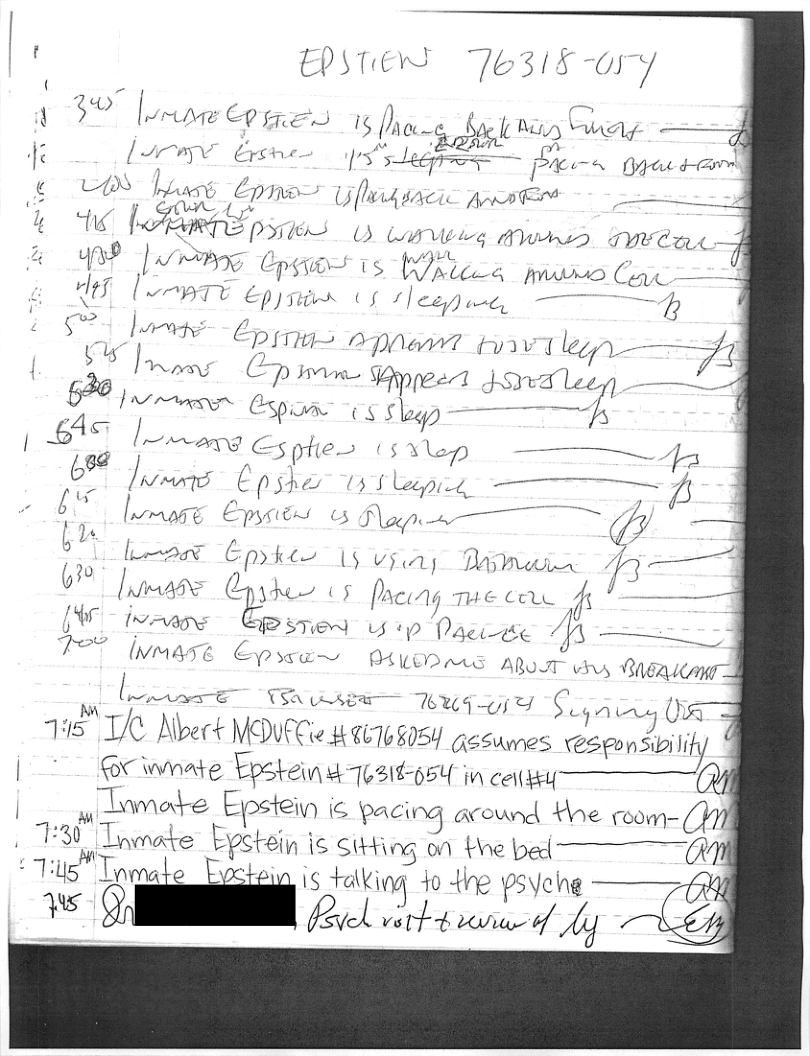 EPSTIEN 76318-054
345 INMATE EPSTIEN IS PACING BACK AND FOURTH
INMATE Epstien PACING BACK & FROM
INMATE EPSTIEN IS PACING BACK AND
415 INMATE EPSTIEN IS WALKING AROUND THE CELL
INMATE EPSTIEN IS WALKING AROUND CELL
445 INMATE EPSTIEN IS sleeping
500 INMATE EPSTIEN APPEARS to be sleep
INMATE APPEARS to be sleep
530 INMATE is sleep
645 INMATE Esptien is slep
600 INMATE Epstien is sleeping
615 INMATE EPSTIEN is sleeping
620 INMATE Epstien is using BATHROOM
630 INMATE Epstien is PACING THE CELL
645 INMATE EPSTIEN is
700 INMATE EPSTIEN ASKED ME ABOUT HIS BREAKFAST
INMATE 76269-054 Signing Out
7:15 AM I/C Albert MCDUFFie #86768054 assumes responsibility
for inmate Epstein #76318-054 in cell #4 am
Inmate Epstein is pacing around the room- am
7:30 AM Inmate Epstein is sitting on the bed am
7:45 AM Inmate Epstein is talking to the psych am
745 Dr , Psych visit & review of log